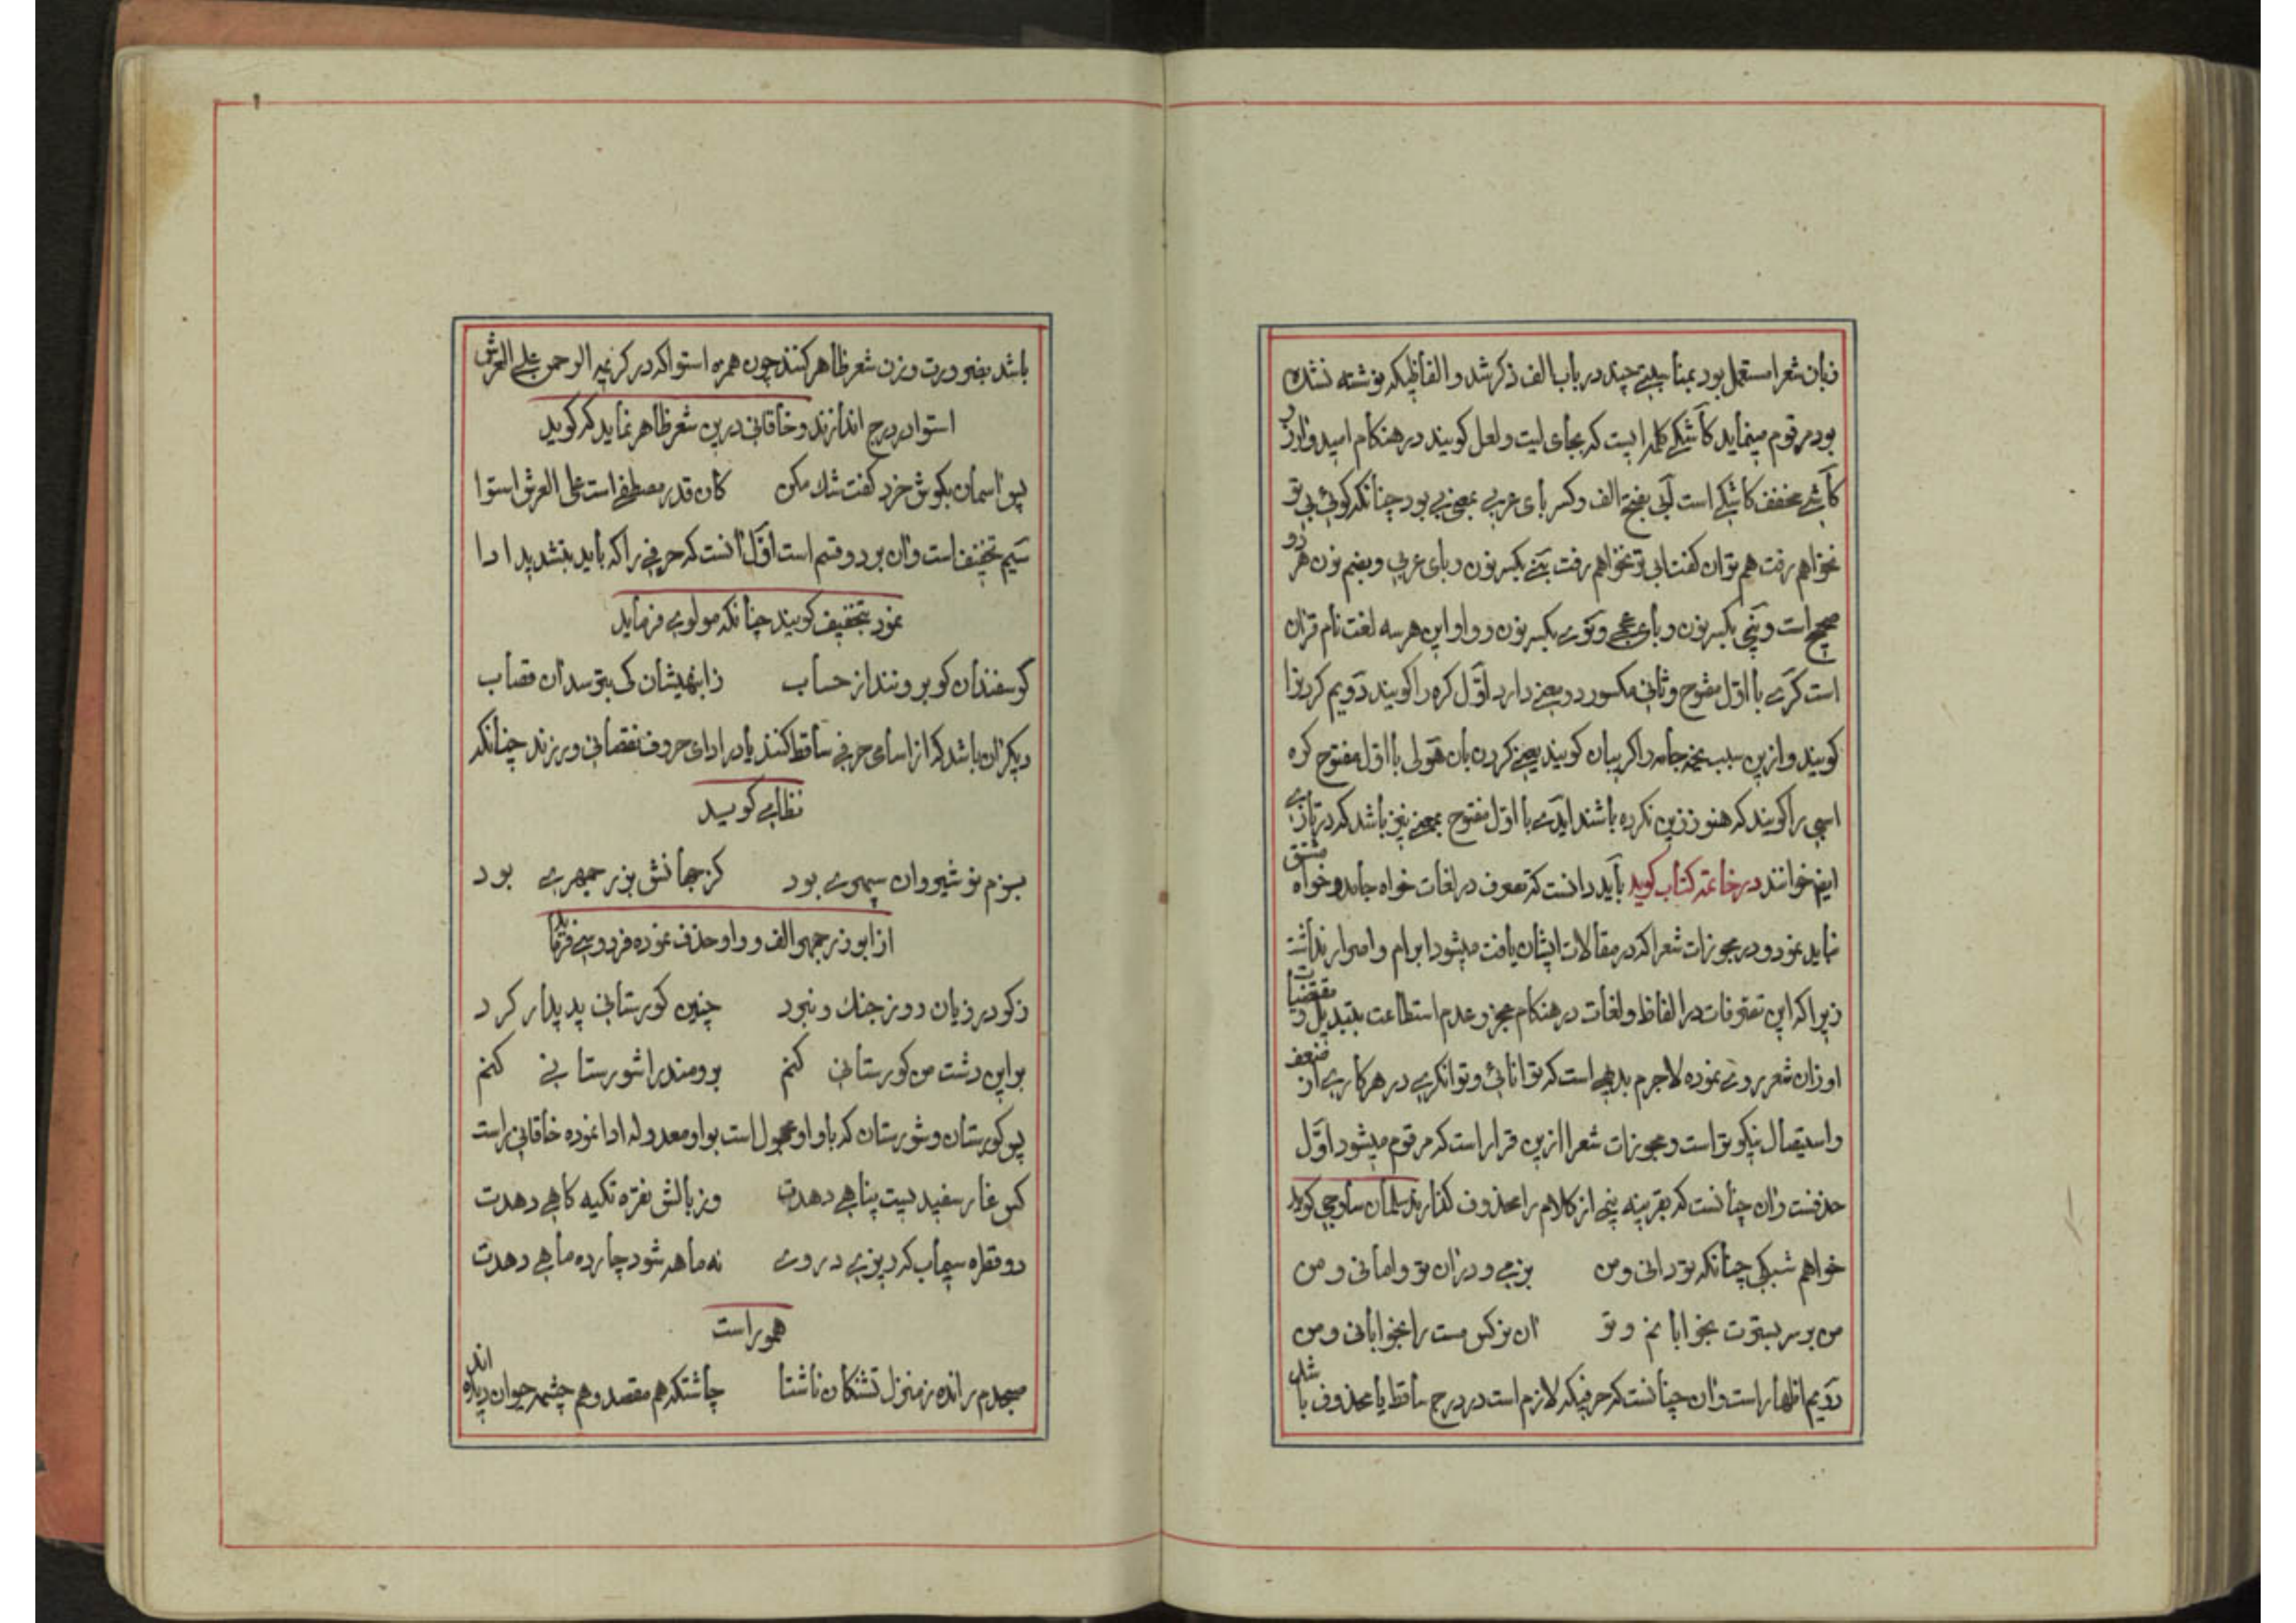 زبان شعرا مستعمل بود بمناسبتی چند در باب الف ذکر شد و الفاظیکه نوشته نشده
بود مرقوم مینماید کاشکی کلمه ایست که بجای لیت و لعل گویند در هنگام امید و آرزو
کاشی مخفف کاشکی است آبی بفتح الف و کسر بای عربی بمعنی بی بود چنانکه گوئی بی تو
نخواهم رفت هم توان گفت ابی تو نخواهم رفت نبی بکسر نون و بای عربی و بضم نون هر دو
صحیح است و نپی بکسر نون و بای عجمی و نوی بکسر نون و واو این هر سه لغت نام قرآن
است کری با اول مفتوح و ثانی مکسور دو معنی دارد اول کره را گویند دویم کر بزا
گویند و ازین سبب یخه جامه را گریبان گویند یعنی گردن بان هولی با اول مفتوح کره
اسبی را گویند که هنوز زین نکرده باشند ایدی با اول مفتوح بمعنی نیز باشد که در تازی
ایضا خوانند در خاتمه کتاب گوید باید دانست که تصرف در لغات خواه جامد و خواه مشتق
نباید نمود و در مجوزات شعرا که در مقالات ایشان یافت میشود ابرام و اصرار نداشت
زیرا که این تصرفات در الفاظ و لغات در هنگام عجز و عدم استطاعت بتبدیل و مقتضیات
اوزان شعر روی نموده لاجرم بدیهی است که توانائی و توانگری در هر کاری از ضعف
و استیصال نیکوتر است و مجوزات شعرا ازین قرار است که مرقوم میشود اول
حذفست و آن چنانست که بقرینه پنی از کلام را محذوف گذارند سلمان ساوجی گوید
خواهم شبکی چنانکه تو دانی و من بزمی و در آن تو وامانی و من
من بر سر بسترت بخوابانم و تو آن نرگس مست را بخوابانی و من
دویم اظهار است و آن چنانست که حرفیکه لازم است در درج ساقط یا محذوف با شد
باشد بضرورت وزن شعر ظاهر کنند چون همزه استوا که در کریمه الرحمن علی العرش
استوا در درج اندازند و خاقانی درین شعر ظاهر نماید که گوید
پیر آسمان بگوش خرد گفت شک مکن کان قدر مصطفی است علی العرش استوا
سیم تخفیف است و آن بر دو قسم است اول آنست که حرفی را که باید بتشدید ادا
نمود بتخفیف گویند چنانکه مولوی فرماید
گوسفندان گر برونند از حساب ز انبهیشان کی بترسد آن قصاب
دیگر آن باشد که از اسامی حرفی ساقط کنند یا در ادای حروف نقصانی ورزند چنانکه
نظامی گوید
ببزم نوشیروان سپهری بود کز جهانش بزرجمهری بود
از ابوزرجمهر الف و واو حذف نموده فردوسی فرماید
ز گودرزیان روز جنگ و نبرد چنین گورستانی پدیدار کرد
بر این دشت من گورستانی کنم برومند را شورستانی کنم
پس گورستان و شورستان که با واو مجهول است بواو معدوله ادا نموده خاقانی راست
کس غار سفید بیت پناهی دهدت وز بالش نقره تکیه گاهی دهدت
دو قطره سیماب که دیزی در وی نه ماهه شود چارده ماهی دهدت
هموراست
صبحدم رانده ز منزل تشنگان ناشتا چاشتگه هم مقصد و هم چشمه حیوان دیده اند